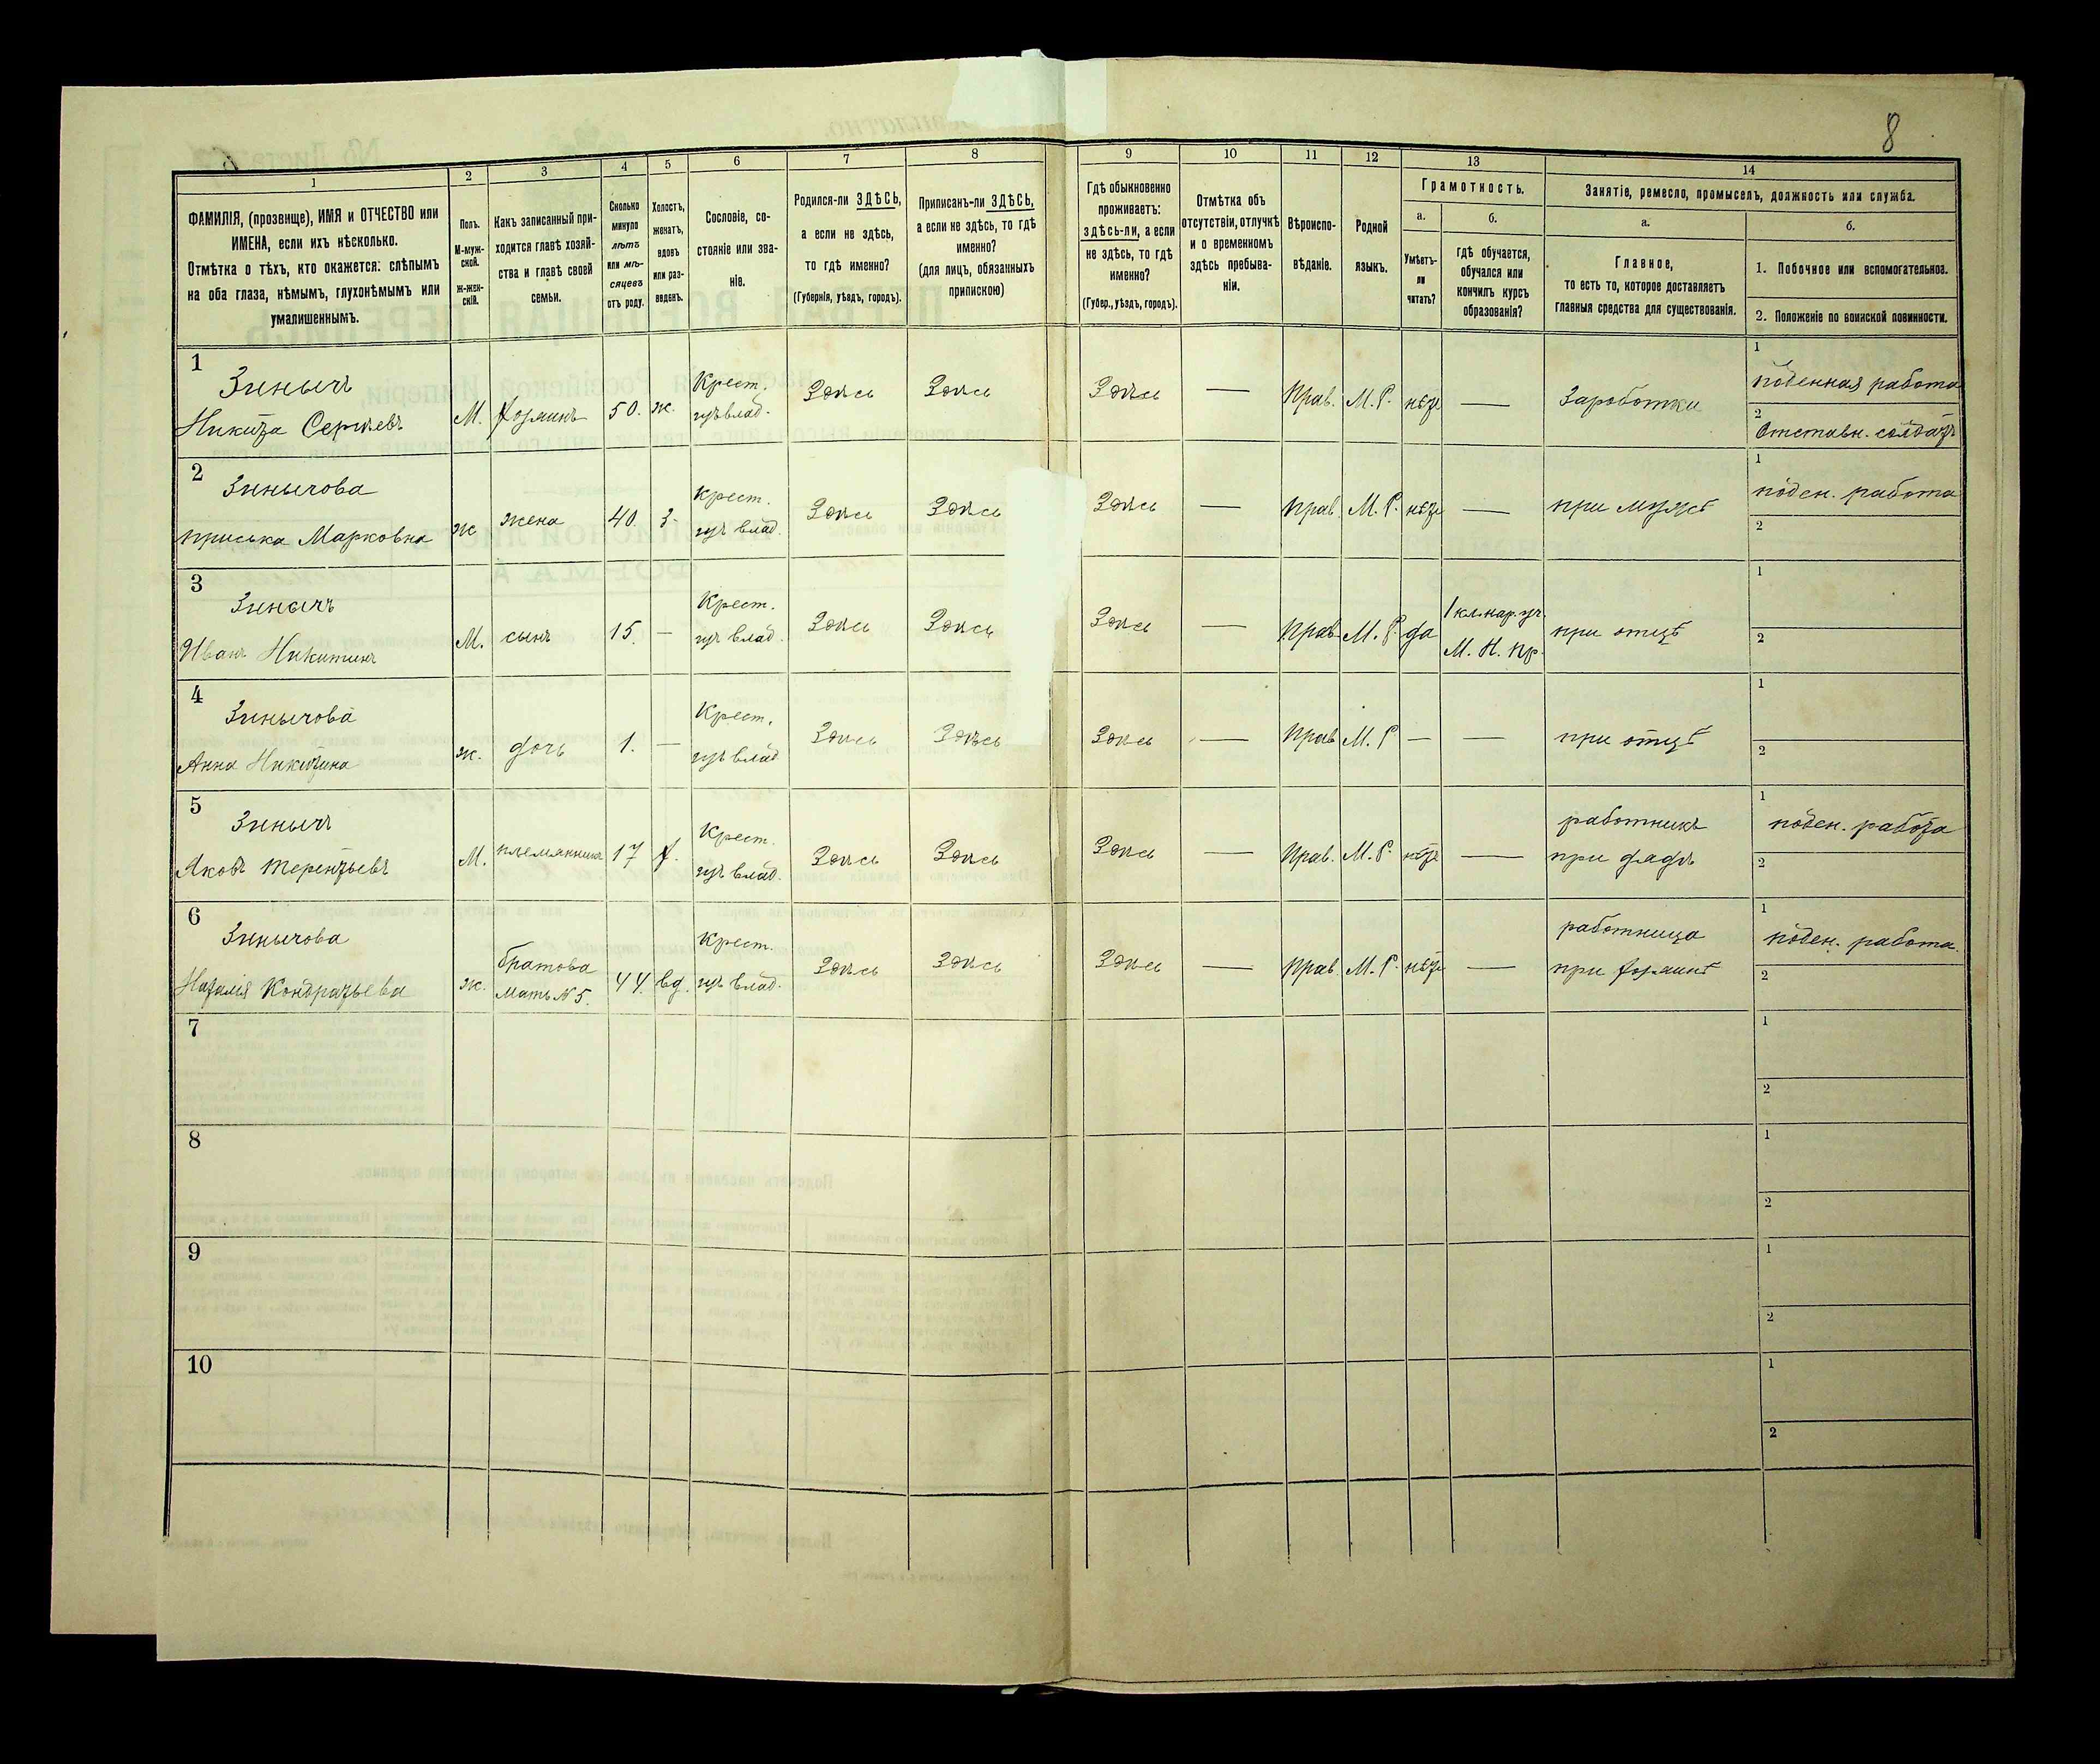 8
1
2
3
4
5
6
7
8
9
10
11
12
13
14
ФАМИЛІЯ, (прозвище), ИМЯ и ОТЧЕСТВО или
ИМЕНА, если ихъ нѣсколько.
Отмѣтка о тѣхъ, кто окажется: слѣпымъ
на оба глаза, нѣмымъ, глухонѣмымъ или
умалишеннымъ.
Полъ.
М-муж-
ской.
Ж-жен-
скій.
Какъ записанный при-
ходится главѣ хозяй-
ства и главѣ своей
семьи.
Сколько
минуло
лѣтъ
или мѣ-
сяцевъ
отъ роду.
Холостъ,
женатъ,
вдовъ
или раз-
веденъ.
Сословіе, со-
стояніе или зва-
ніе.
Родился-ли ЗДѢСЬ,
а если не здѣсь,
то гдѣ именно?
(Губернія, уѣздъ, городъ).
Приписанъ-ли ЗДѢСЬ,
а если не здѣсь, то гдѣ
именно?
(для лицъ, обязанныхъ
припискою)
Гдѣ обыкновенно
проживаетъ:
здѣсь-ли, а если
не здѣсь, то гдѣ
именно?
(Губер., уѣздъ, городъ).
Отмѣтка объ
отсутствіи, отлучкѣ
и о временномъ
здѣсь пребыва-
ніи.
Вѣроиспо-
вѣданіе.
Родной
языкъ.
Грамотность.
а.
Умѣетъ-
ли
читать?
б.
гдѣ обучается,
обучался или
кончилъ курсъ
образованія?
Занятіе, ремесло, промыселъ, должность или служба.
а.
Главное,
то есть то, которое доставляетъ
главныя средства для существованія.
б.
1. Побочное или вспомогательное.
2. Положеніе по воинской повинности.
1
Зинычъ
Никита Сергѣевъ
М.
хозяинъ
50.
ж.
Крест.
Здѣсь
Здѣсь
Здѣсь
—
Прав.
М.Р.
нѣтъ
—
Зароботки
1
поденная работа
2
Отставн. солдатъ
2
Зинычова
Приська Марковна
ж
жена
40.
З.
Крест.
Здѣсь
Здѣсь
Здѣсь
—
Прав.
М.Р.
нѣтъ
—
при мужѣ
1
поден. работа
2
3
Зинычъ
Иванъ Никитинъ
М.
сынъ
15.
—
Крест.
Здѣсь
Здѣсь
Здѣсь
—
Прав.
М.Р.
да
1 кл. нар. уч.
М. Н. Пр.
при отцѣ
1
2
4
Зинычова
Анна Никитина
ж.
дочь
1.
—
Крест.
Здѣсь
Здѣсь
Здѣсь
—
Прав.
М.Р
—
—
при отцѣ
1
2
5
Зинычъ
Яковъ Терентьевъ
М.
племянникъ
17
х.
Крест.
Здѣсь
Здѣсь
Здѣсь
—
Прав.
М.Р.
нѣтъ
—
работникъ
при дядѣ
1
поден. работа
2
6
Зинычова
Наталія Кондратьева
ж.
братова
мать №5.
44.
вд.
Крест.
Здѣсь
Здѣсь
Здѣсь
—
Прав.
М.Р.
нѣтъ
—
работница
при хозяинѣ
1
поден. работа.
2
7
1
2
8
1
2
9
1
2
10
1
2